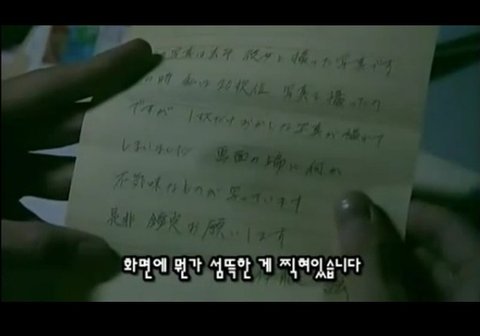 写真は去年 彼女と撮った写真です
時 私は 枚位 写真を撮ったの
ですが 1枚だけおかしな写真が撮れて
しまいました 画面の端に何か
不気味なものが写っています
是非 鑑定お願いします
화면에 뭔가 섬뜩한 게 찍혀있습니다